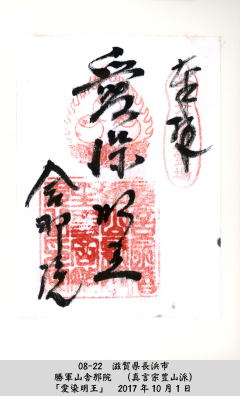 奉拝
愛染明王
舎那院
08-22 滋賀県長浜市
勝軍山舎那院 （真言宗豊山派）
「愛染明王」 2017年10月1日